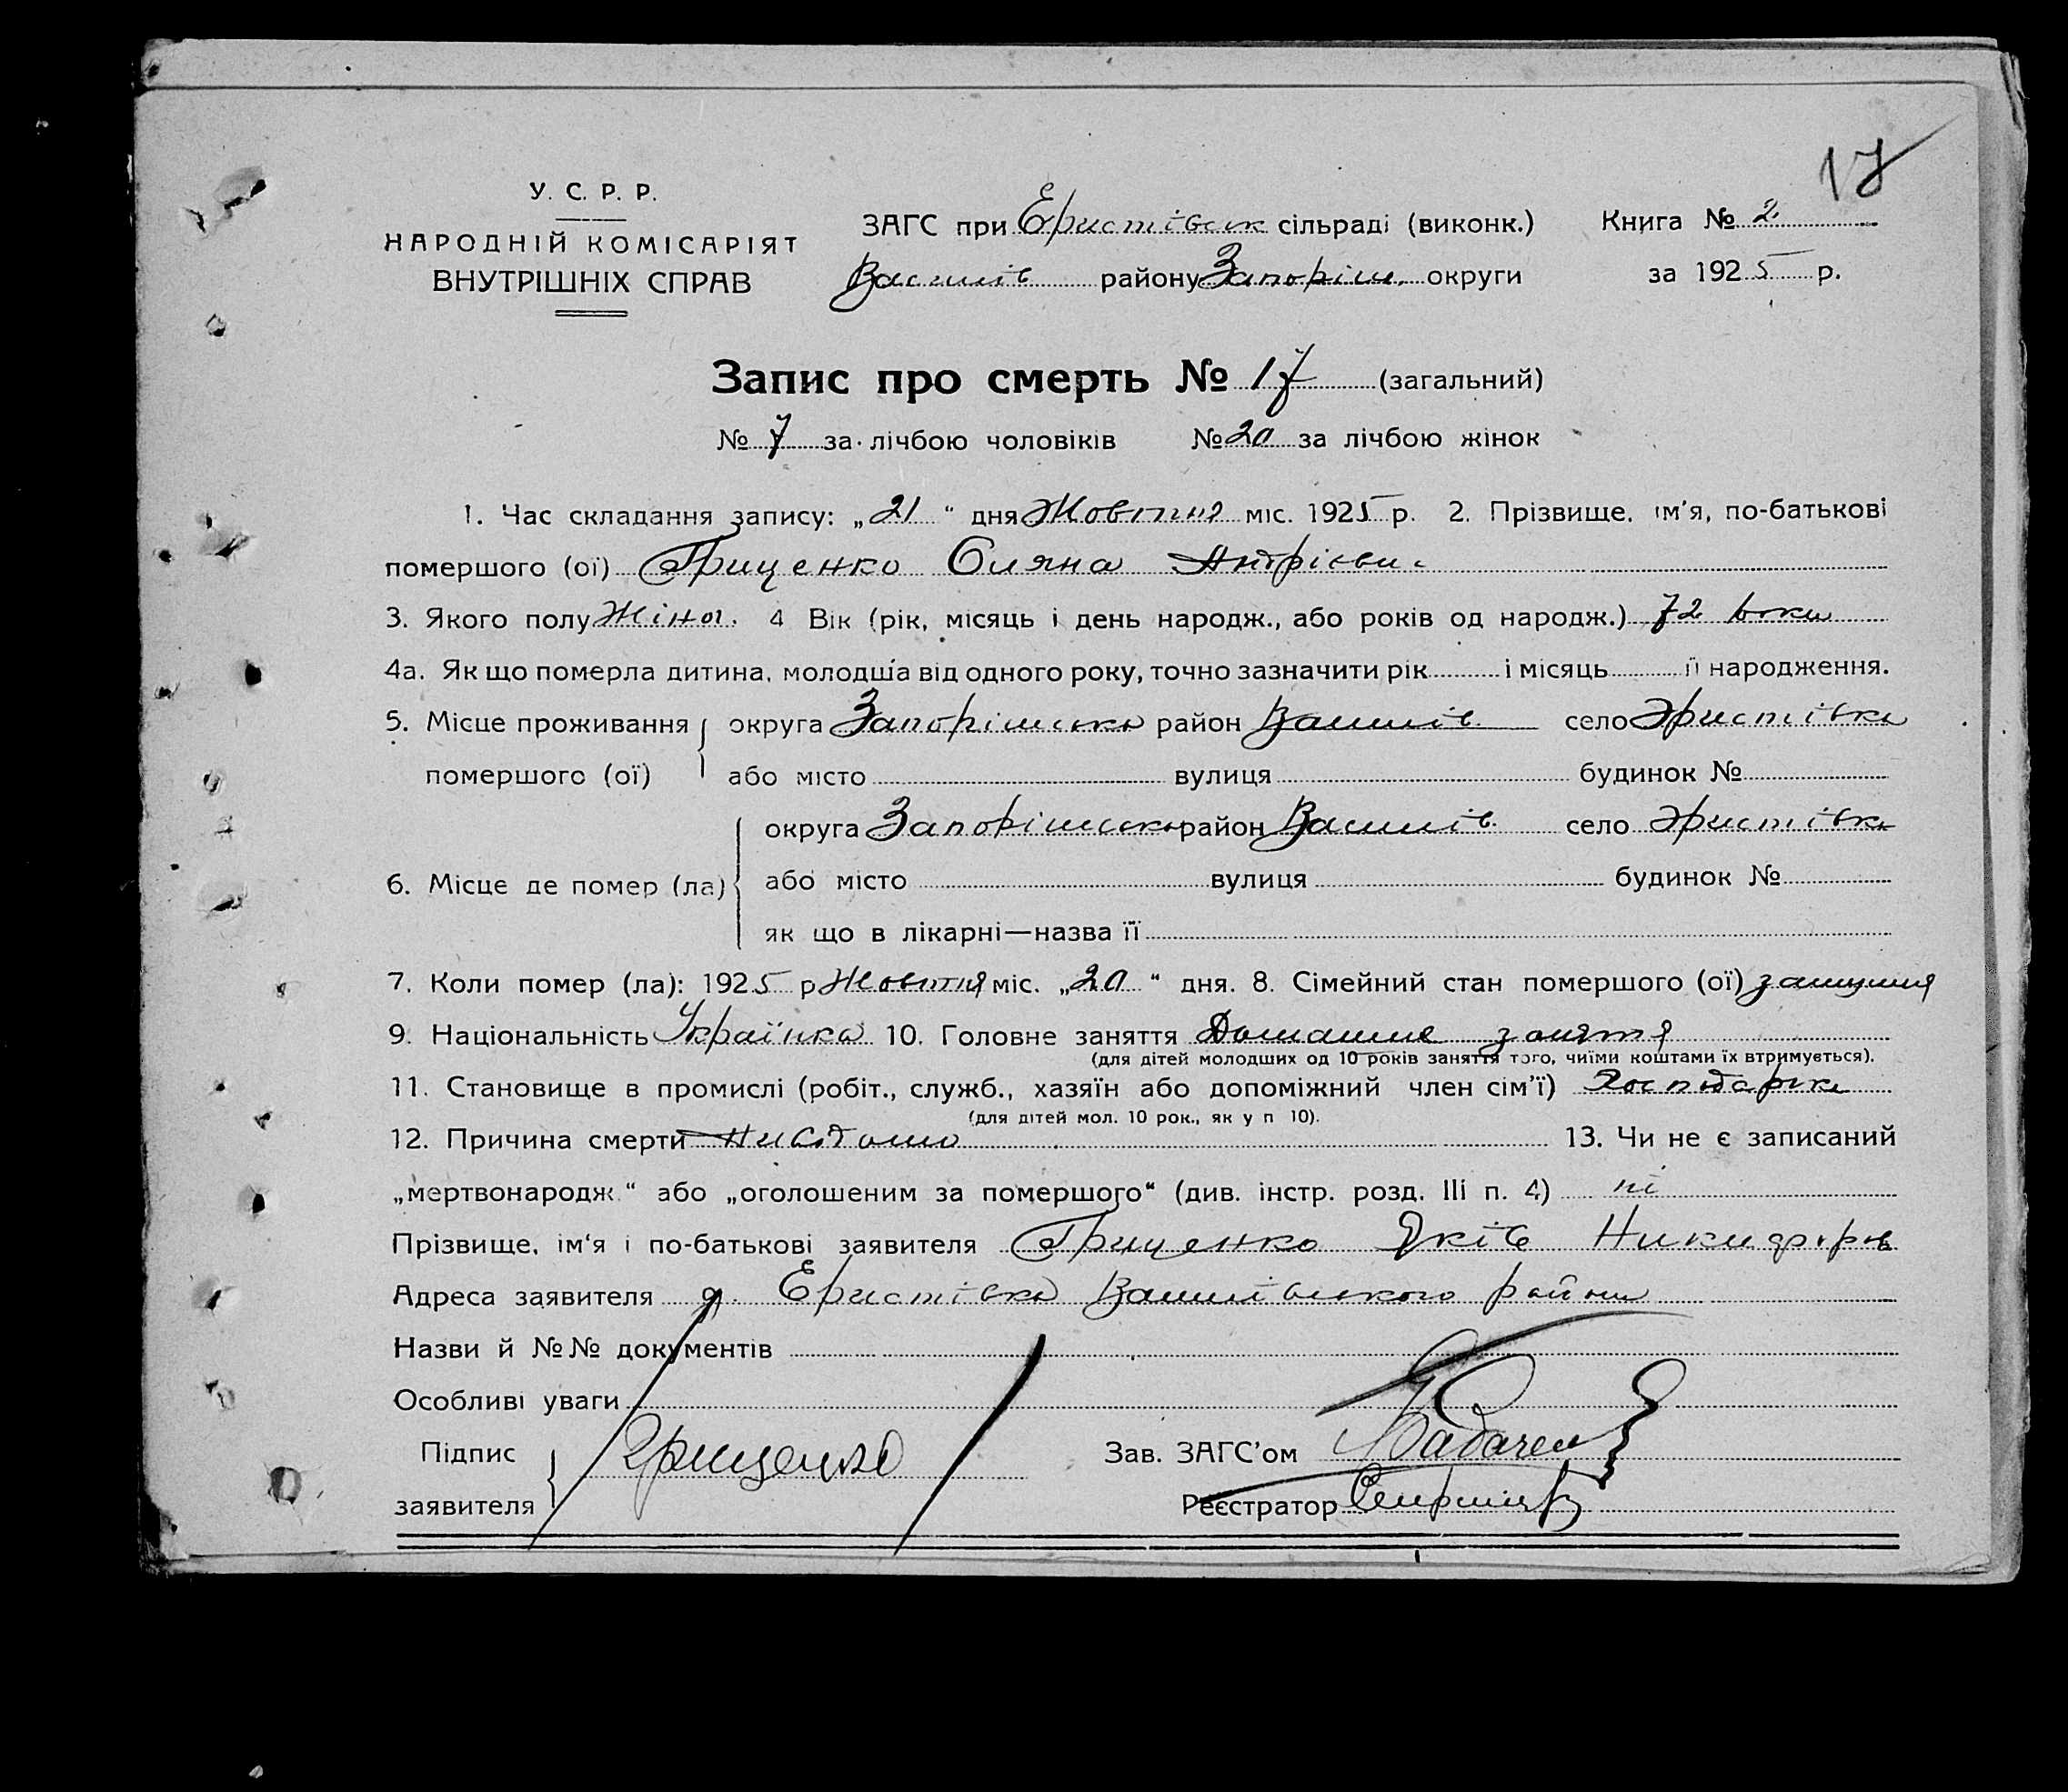 17
У. С. Р. Р.
НАРОДНІЙ КОМІСАРІЯТ
ВНУТРІШНІХ СПРАВ
ЗАГС при Ēристівськ сільраді (виконк.) Книга № 2
Василів району Запоріш. округи за 1925 р.
Запис про смерть № 17 (загальний)
№ 7 за лічбою чоловіків № 20 за лічбою жінок
1. Час складання запису: „21“ дня Жовтня міс. 1925 р. 2. Прізвище, ім'я, по-батькові
помершого (ої) Грищенко Оляна Андрієви
3. Якого полу Жіноч. 4 Вік (рік, місяць і день народж., або років од народж.) 72 роки
4а. Як що померла дитина, молодша від одного року, точно зазначити рік і місяць її народження.
5. Місце проживання округа Запорішська район Василів село Эристівка
помершого (ої) або місто вулиця будинок №
округа Запорішська район Василів село Эристівка
6. Місце де помер (ла) або місто вулиця будинок №
як що в лікарні—назва її
7. Коли помер (ла): 1925 р Жовтня міс. „20“ дня. 8. Сімейний стан помершого (ої) замужня
9. Національність Українка 10. Головне заняття Домашнє заняття
(для дітей молодших од 10 років заняття того, чиїми коштами їх втримується).
11. Становище в промислі (робіт., служб., хазяїн або допоміжний член сім'ї) Господарка
(для дітей мол. 10 рок., як у п 10).
12. Причина смерти невідомо 13. Чи не є записаний
„мертвонародж.“ або „оголошеним за помершого“ (див. інстр. розд. III п. 4) ні
Прізвище, ім'я і по-батькові заявителя Грищенко Яків Никифоров
Адреса заявителя д. Еристівка Василівського району
Назви й №№ документів
Особливі уваги
Підпис Грищенко Зав. ЗАГС'ом
заявителя Реєстратор